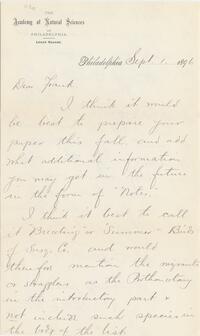 THE
Academy of Natural Sciences
OF
PHILADELPHIA
LOGAN SQUARE
Philadelphia Sept. 1 1896
Dear Frank
I think it would
be best to prepare your
paper this fall, and add
what additional information
you may get in the future
in the form of "Notes."
I think it best to call
it "Breeding or Summer" Birds
of Susq. Co. and would
therefore mention the migrants
or stragglers as the Prothonotary
in the introductory part &
not include such species in
the body of the list.